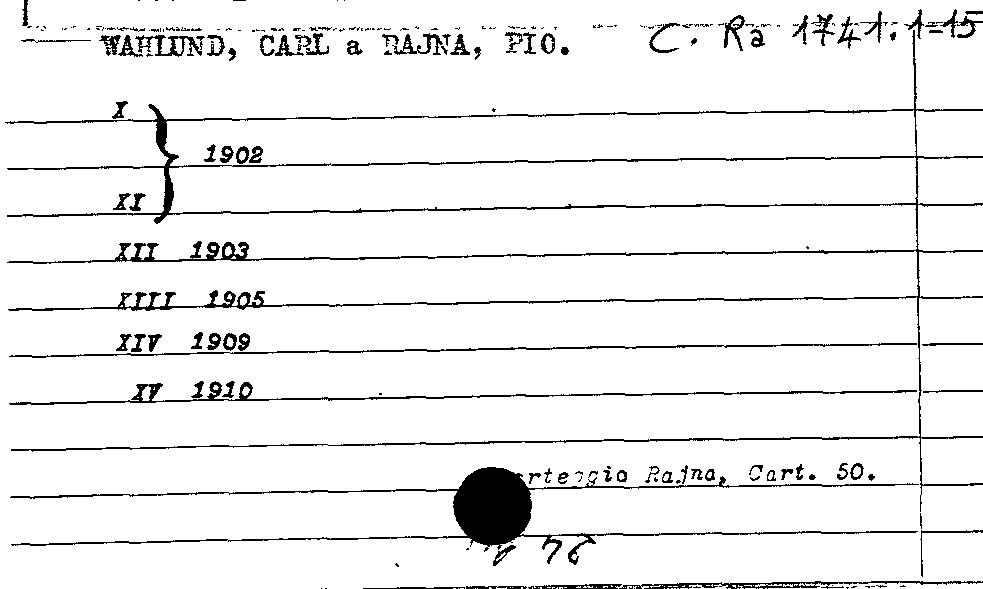 WAHLUND, CARL a RAJNA, PIO. C. Ra 1741. 1-15
X
} 1902
XI
XII 1903
XIII 1905
XIV 1909
XV 1910
rteggio Rajna, Cart. 50.
76